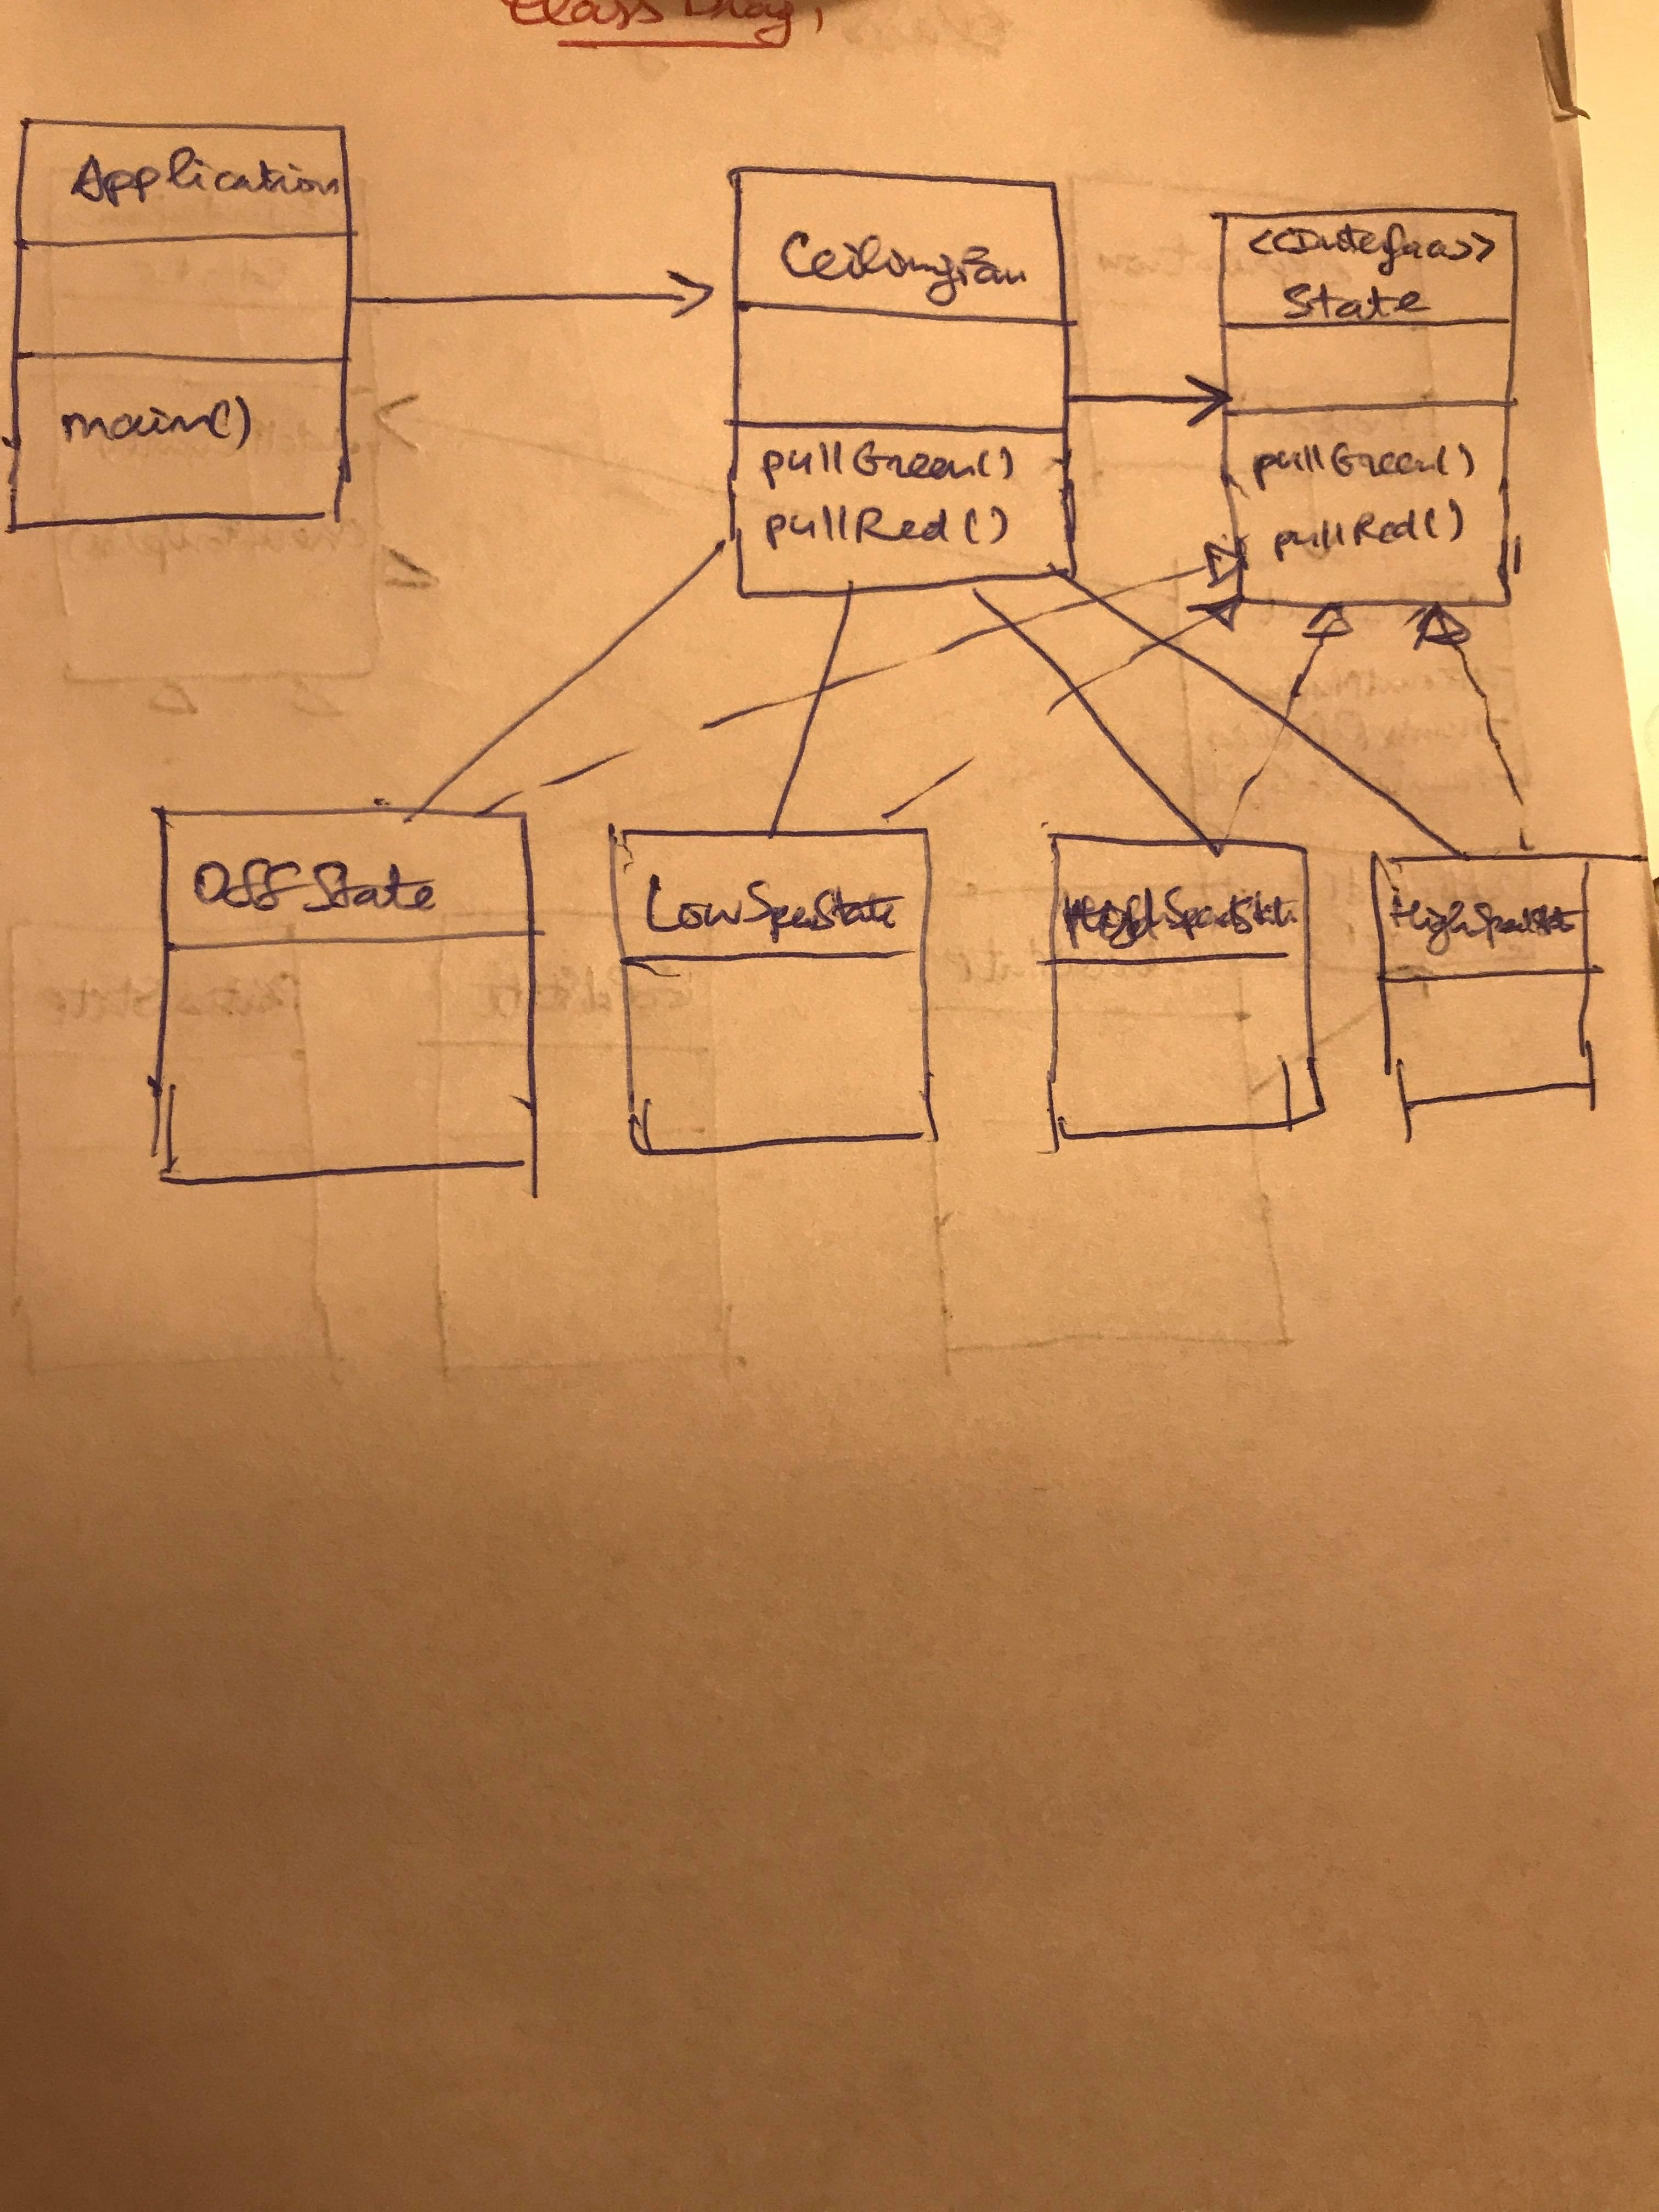 Class Diag,
Application
main()
CeilingFan
pullGreen()
pullRed()
<<Interface>>
State
pullGreen()
pullRed()
OffState
LowSpeeState
SpeedState
HighSpeedState